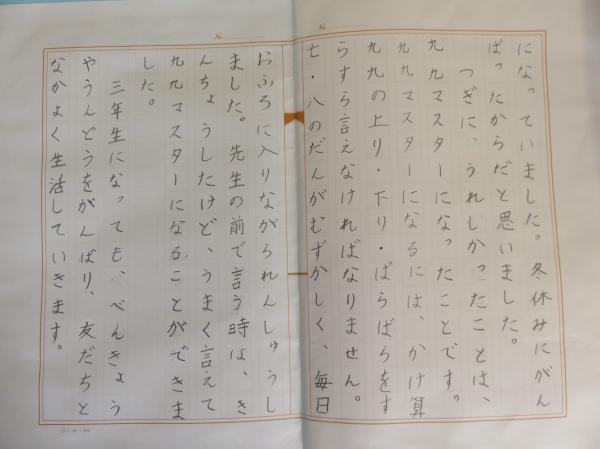 になっていました。冬休みにがん
ばったからだと思いました。
つぎに、うれしかったことは、
九九マスターになったことです。
九九マスターになるには、かけ算
九九の上り・下り・ばらばらをす
らすら言えなければなりません。
七・八のだんがむずかしく、毎日
おふろに入りながられんしゅうし
ました。先生の前で言う時は、き
んちょうしたけど、うまく言えて
九九マスターになることができま
した。
三年生になっても、べんきょう
やうんどうをがんばり、友だちと
なかよく生活していきます。
№
№